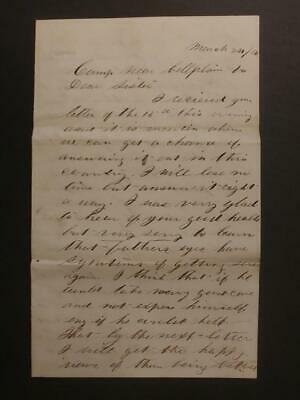 March 24/6
Camp Near Bellplain Va
Dear Sister
I recieved your
letter of the 16th this evening
and it is when
we can get a chance of
answering if out in this
country. I will lose no
time but answer it right
a way. I was very glad
to hear of your good health
but very sorry to learn
that fathers eyes have
of getting sore
again. I think that if he
could take very good care
and not expose himself
eny if he could help
That by the next letter
I will get the happy
news of them being better